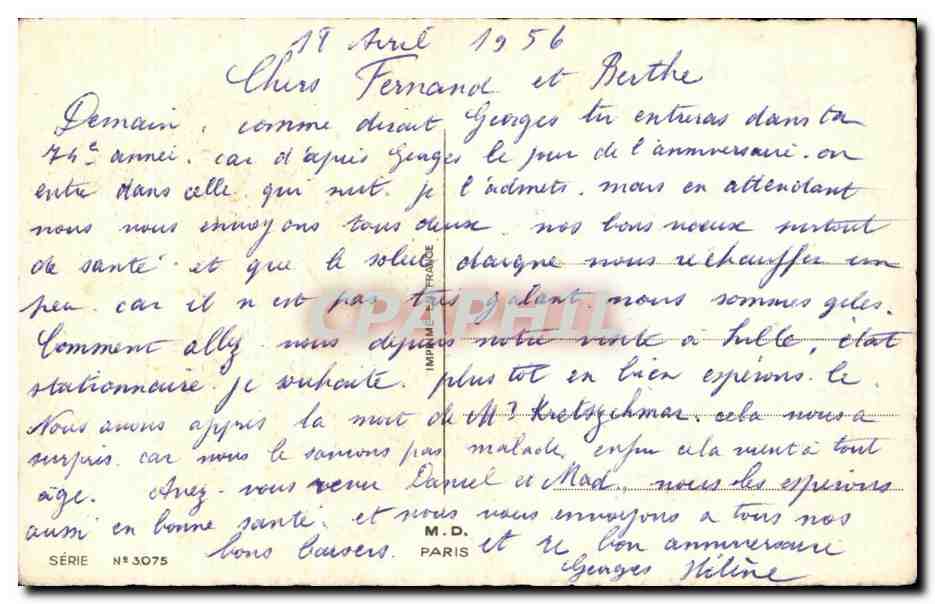 18 Avril 1956
Chers Fernand et Berthe
Demain, comme dirait Georges tu entreras dans ta
74e année. car d'après Georges le jour de l'anniversaire. on
entre dans celle qui suit. je l'admets. mais en attendant
nous vous envoyons tous deux nos bons vœux surtout
de santé et que le soleil daigne nous réchauffer un
peu car il n'est pas très galant, nous sommes gelés.
Comment allez vous depuis notre visite à Lille, état
stationnaire je souhaite. plus tot en bien espérons le.
Nous avons appris la mort de Mr Kretzschmar. cela nous a
surpris car nous le savions pas malade, enfin cela vient à tout
âge. Avez-vous revu Daniel et Mad., nous les espérons
aussi en bonne santé. et nous vous envoyons a tous nos
bons baisers. et re bon anniversaire
Georges Hélène
IMPRIMÉ EN FRANCE
CPAPHIL
SÉRIE No 3075
M.D.
PARIS